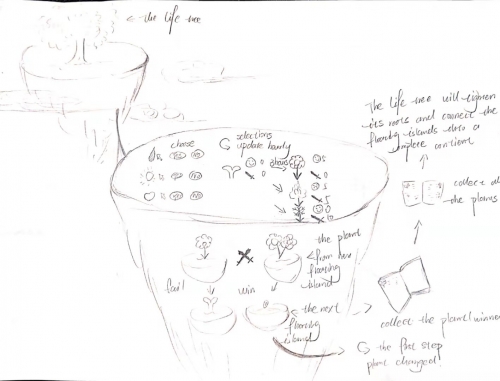 ← The life tree
The life tree will tighten
its roots and connect the
floating islands into a
complete continent
choose
selections
update hourly
yes no
yes no
yes no
0
0
5
0
5
5
0
collect all
the plants
the plant
from new
floating
island
fail
win
the next
floating
island
collect the plant winner
the first step
plant changed!